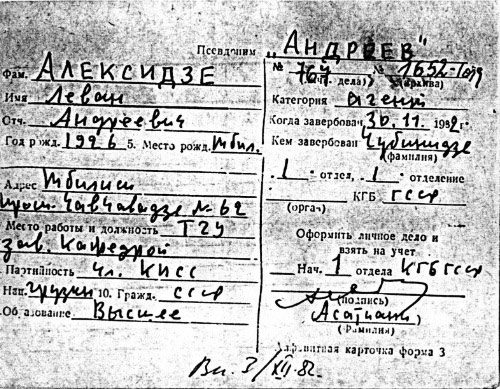 Псевдоним „АНДРЕЕВ"
Фам. АЛЕКСИДЗЕ
Имя Леван
Отч. Андреевич
Год рожд. 1926 5. Место рожд. Тбил.
Адрес Тбилиси
просп. Чавчавадзе № 62
Место работы и должность ТГУ
зав. Кафедрой
Партийность чл. КПСС
Нац. грузин 10. Гражд. СССР
Образование Высшее
№ № 1652-
(дела) (архива)
Категория агент
Когда завербован 30.11.1982 г.
Кем завербован
(фамилия)
1 отдел, 1 отделение
КГБ ГССР
(орган)
Оформить личное дело и
взять на учет
Нач. 1 отдела КГБ ГССР
(подпись)
Асатиани
(фамилия)
Алфавитная карточка форма 3
Вн. 3/XII-82.